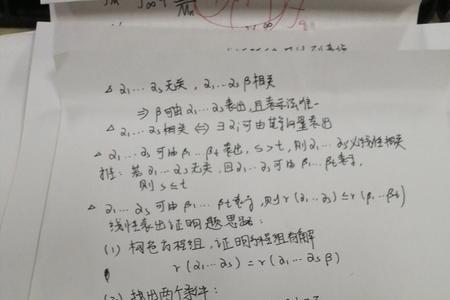 △ α₁…αs无关，α₁…αs β相关
⇒ β可由α₁…αs表出，且表示法唯一
△ α₁…αs相关 ⇔ ∃ αi可由其余向量表出
△ α₁…αs可由β₁…βt表出，s>t，则α₁…αs必线性相关
推：若α₁…αs无关，且α₁…αs可由β₁…βt表示，
则 s≤t
△ α₁…αs可由β₁…βt表示，则r(α₁…αs)≤r(β₁…βt)
线性表出证明题思路：
(1) 构造方程组，证明方程组有解
r(α₁…αs) = r(α₁…αs β)
(2) 找出两个条件：